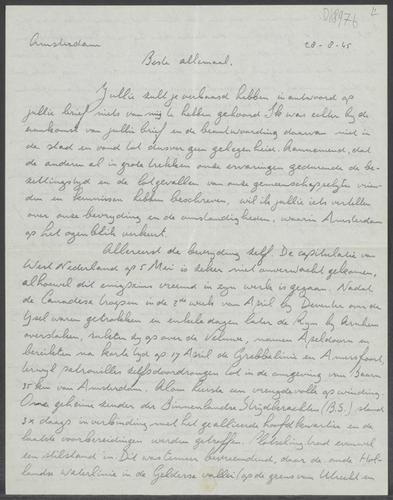 D18976
Amsterdam 28-8-45
Beste allemaal.
Jullie zult je verbaasd hebben in antwoord op
jullie brief niets van mij te hebben gehoord. Ik was echter bij de
aankomst van jullie brief en de beantwoording daarvan niet in
de stad en vond tot dusver geen gelegenheid. Aannemend, dat
de anderen al in grote trekken onze ervaringen gedurende de be-
zettingstijd en de lotgevallen van onze gemeenschappelijke vrien-
den en kennissen hebben beschreven, wil ik jullie iets vertellen
over onze bevrijding en de omstandigheden, waarin Amsterdam
op het ogenblik verkeert.
Allereerst de bevrijding zelf. De capitulatie van
West Nederland op 5 Mei is zeker niet onverwacht gekomen,
alhoewel dit enigszins vreemd in zijn werk is gegaan. Nadat
de Canadese troepen in de 2e week van April bij Deventer over de
IJsel waren getrokken en enkele dagen later de Rijn bij Arnhem
overstaken, rukten zij op over de Veluwe, namen Apeldoorn en
bereikten na korte tijd op 17 April de Grebbelinie en Amersfoort,
terwijl patrouilles zelfs doordrongen tot in de omgeving van Baarn
35 km van Amsterdam. Alom heerste een vreugdevolle opwinding.
Onze geheime zender der Binnenlandse Strijdkrachten (B.S.) stond
3x daags in verbinding met het geallieerd hoofdkwartier en de
laatste voorbereidingen werden getroffen. Plotseling trad evenwel
een stilstand in. Dit was temeer bevreemdend, daar de oude Hol-
landse Waterlinie in de Gelderse vallei (op de grens van Utrecht en